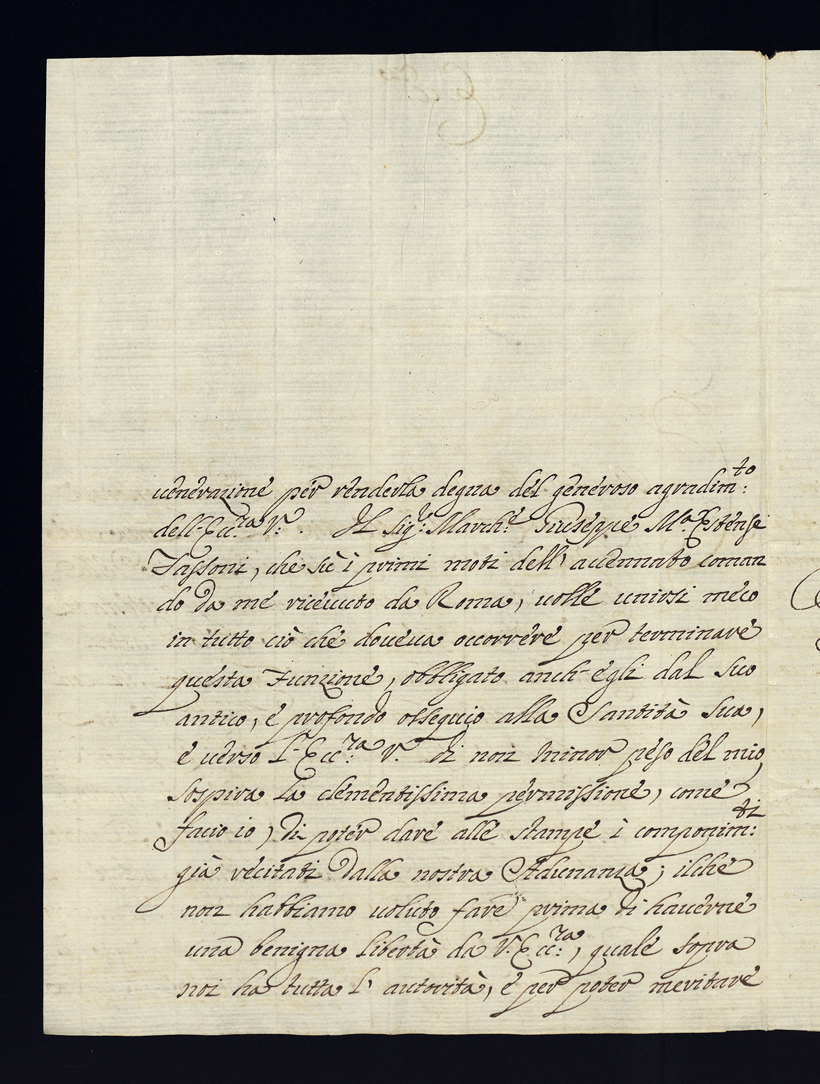 uenerazione per renderla degna del generoso agradim:to
dell'Ecc:ra V.ra Il Sig.r March.e Giuseppe M.a Estense
Tassoni, che sù i primi moti dell' accennato coman
do da me riceuuto da Roma, uolle unirsi meco
in tutto ciò che doueua occorrere per terminare
questa Funzione, obbligato anch'egli dal suo
antico, e profondo ossequio alla Santità Sua,
e uerso l'Ecc:ra V.ra di non minor peso del mio,
sospira la clementissima permissione, come
facio io, di poter dare alle stampe i componim:ti
già recitati dalla nostra Adunanza, ilche
non habbiamo uoluto fare prima di hauerne
una benigna libertà da V. Ecc:ra, quale sopra
noi ha tutta l' autorità, e per poter meritare